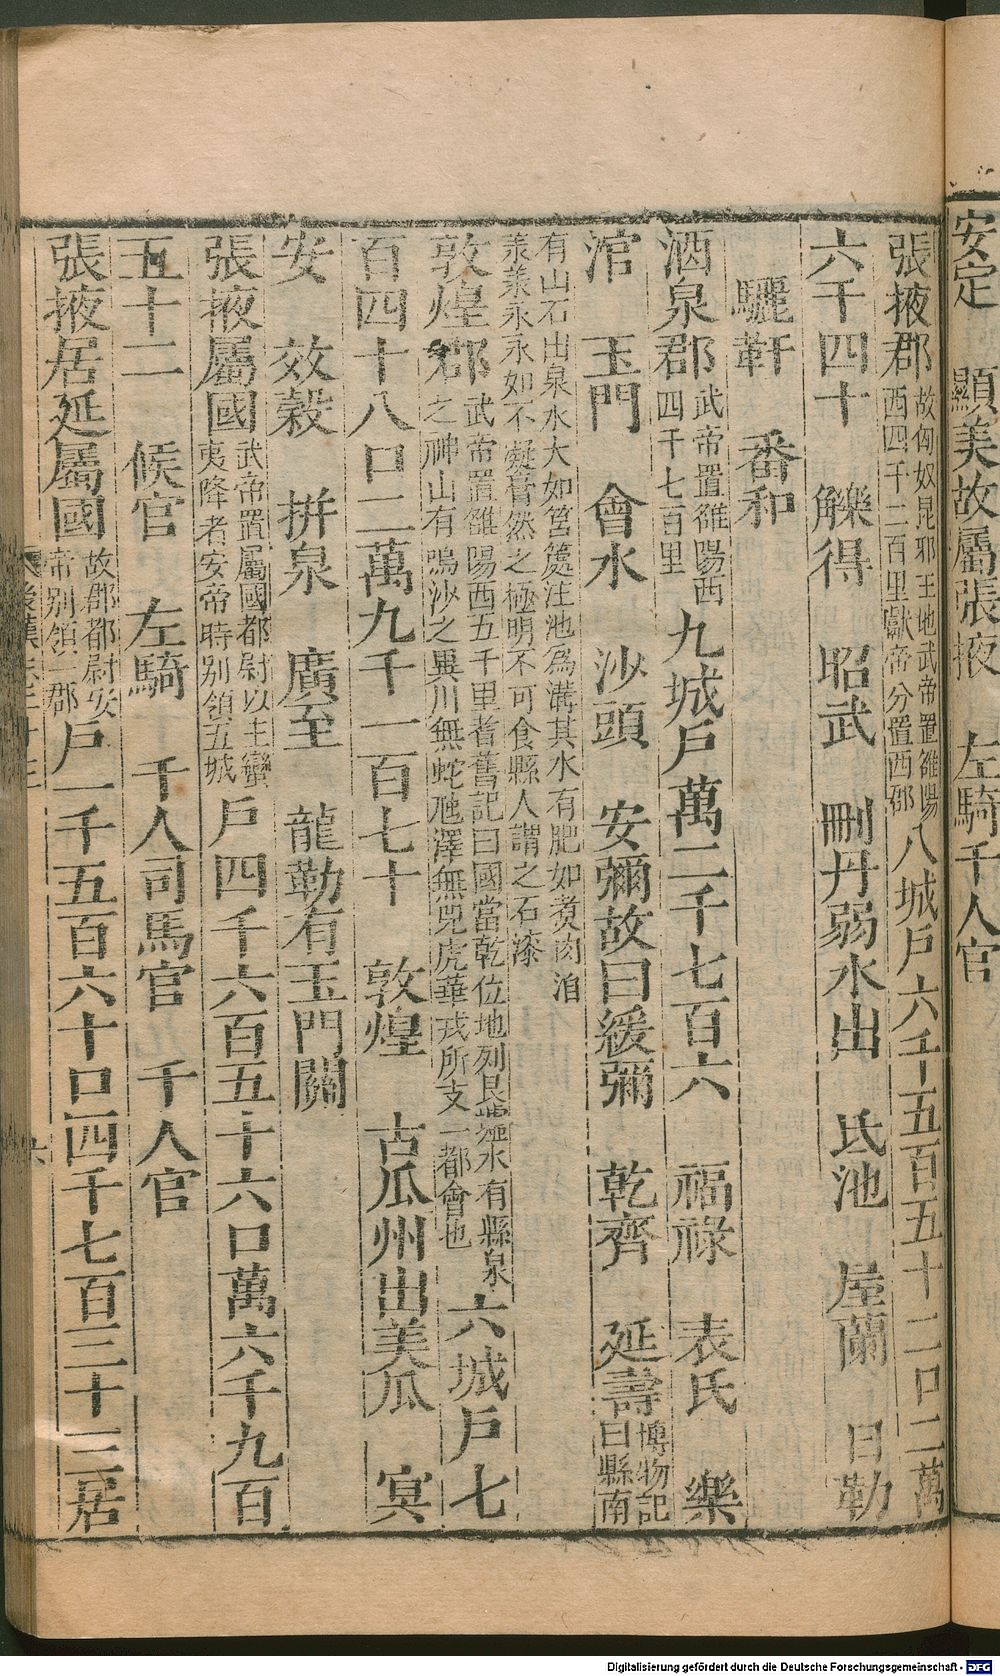 安定　顯美故屬張掖　左騎千人官
張掖郡故匈奴昆邪王地武帝置雒陽西四千二百里獻帝分置西郡八城戶六千五百五十二口二萬
六千四十　觻得　昭武　刪丹弱水出　氐池　屋蘭　日勒
驪靬　番和
酒泉郡武帝置雒陽西四千七百里九城戶萬二千七百六　福祿　表氏　樂
涫　玉門　會水　沙頭　安彌故曰緩彌　乾齊　延壽博物記曰縣南
有山石出泉水大如筥簴注池為溝其水有肥如煑肉洎
羕羕永永如不凝膏然之極明不可食縣人謂之石漆
敦煌郡武帝置雒陽西五千里耆舊記曰國當乾位地列艮墟水有縣泉之神山有鳴沙之異川無蛇虺澤無兕虎華戎所支一都會也六城戶七
百四十八口二萬九千一百七十　敦煌　古瓜州出美瓜　冥
安　效穀　拼泉　廣至　龍勒有玉門關
張掖屬國武帝置屬國都尉以主蠻夷降者安帝時別領五城戶四千六百五十六口萬六千九百
五十二　候官　左騎　千人司馬官　千人官
張掖居延屬國故郡都尉安帝別領一郡戶一千五百六十口四千七百三十三居
Digitalisierung gefördert durch die Deutsche Forschungsgemeinschaft - DFG